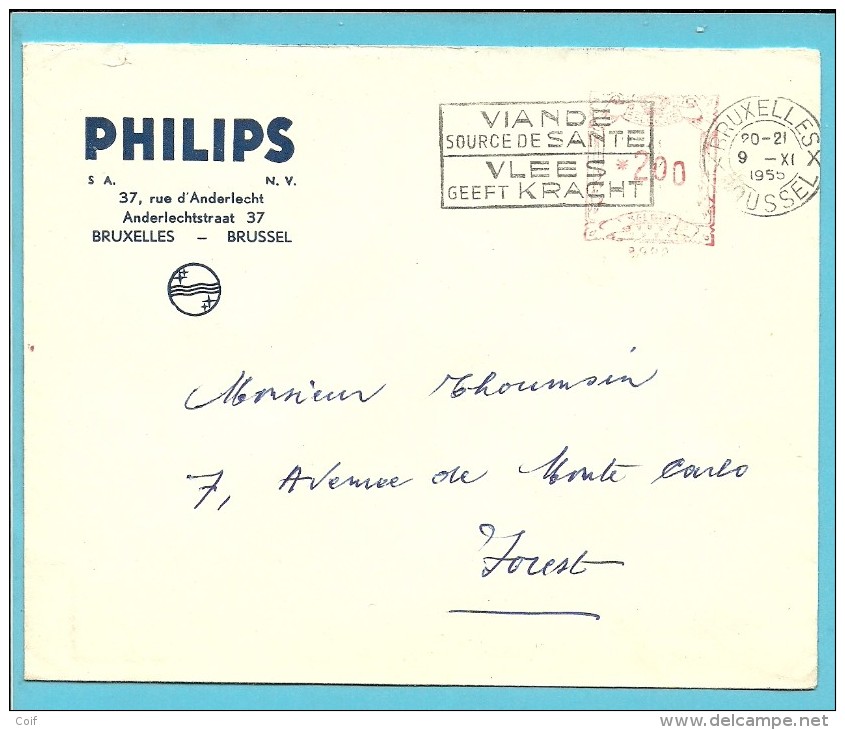 PHILIPS
S A. N. V.
37, rue d'Anderlecht
Anderlechtstraat 37
BRUXELLES — BRUSSEL
VIANDE
SOURCE DE SANTE
VLEES
GEEFT KRACHT
*200
BRUXELLES X
20-21
9 -XI
1955
BRUSSEL
Monsieur Thoumsin
7, Avenue de Monte Carlo
Forest
Coif
www.delcampe.net